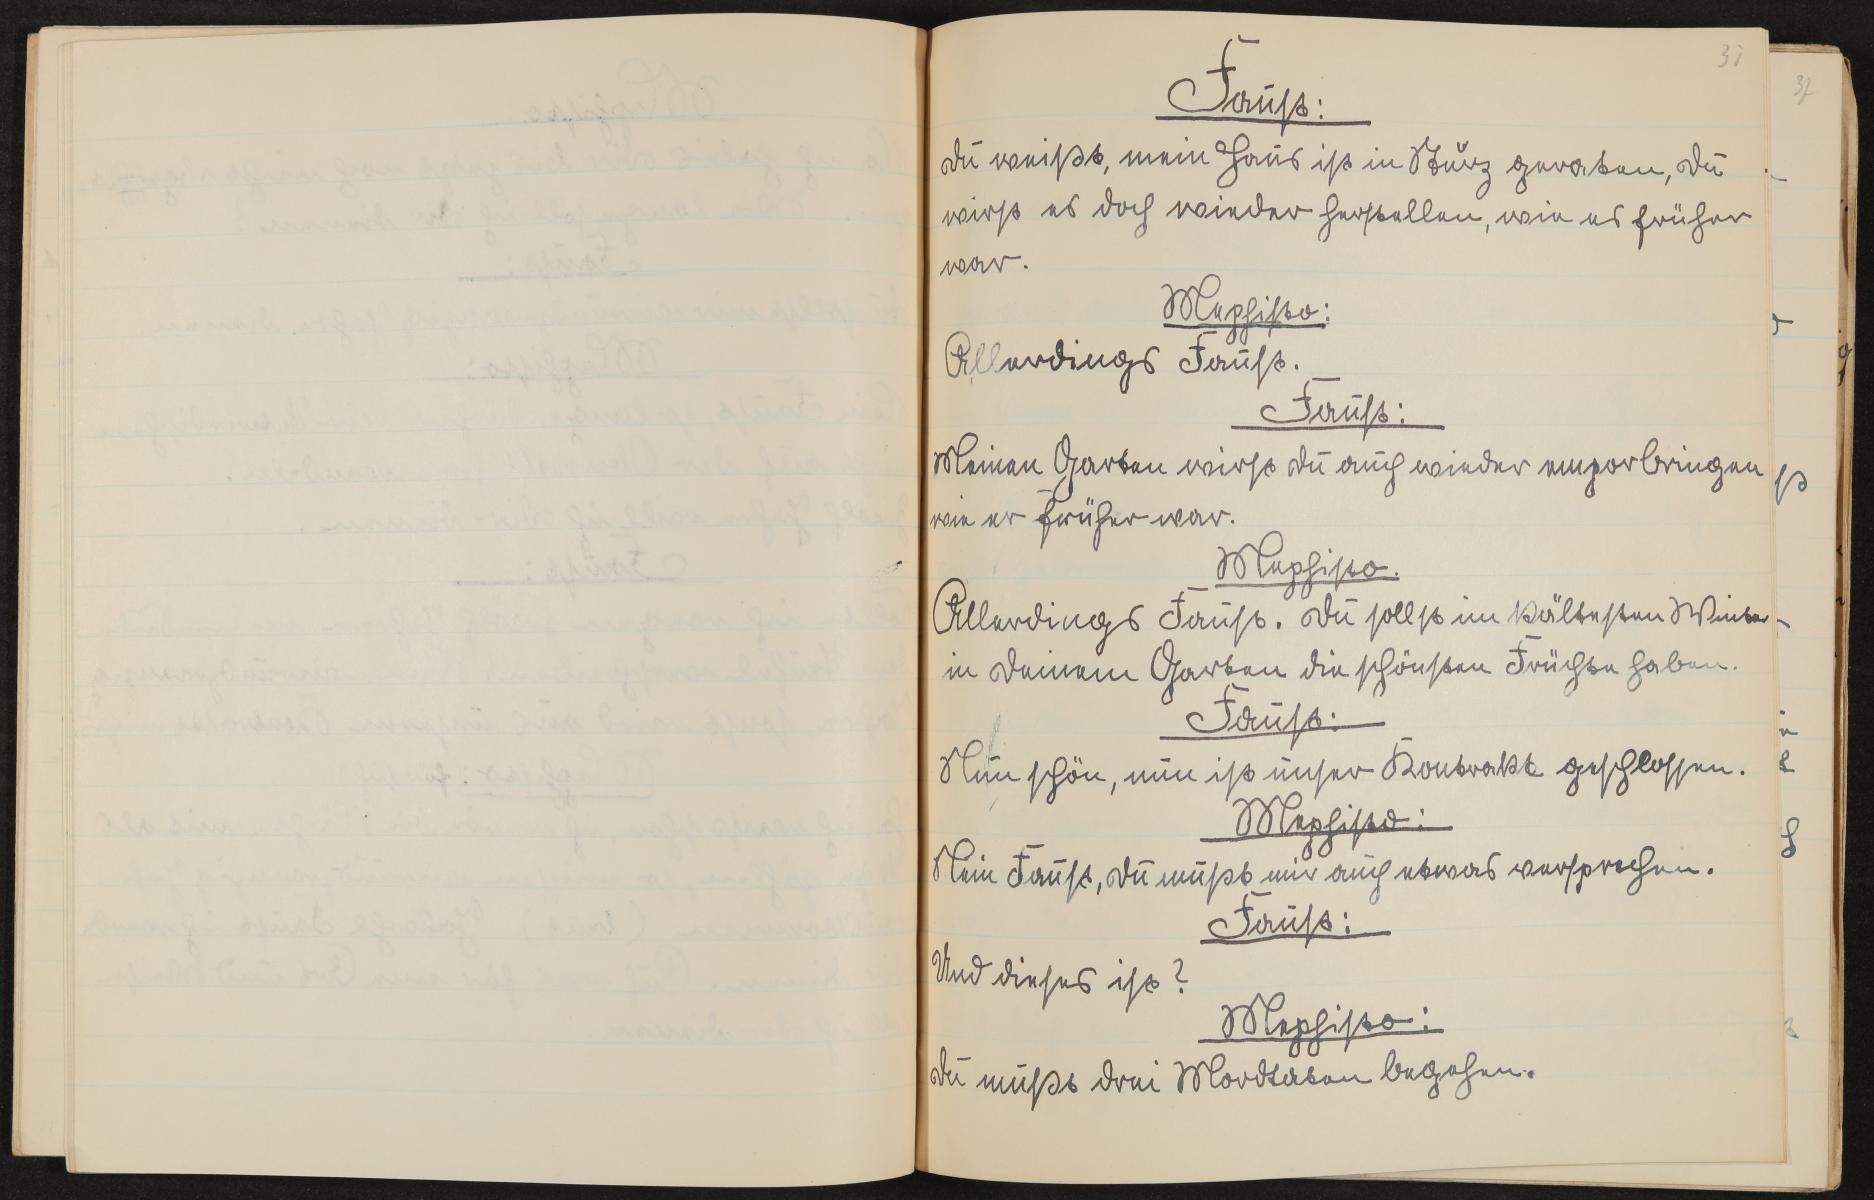 31
Faust:
Du weißt, mein Haus ist in Sturz geraten, Du
wirst es doch wieder herstellen, wie es früher
war.
Mephisto:
Allerdings Faust.
Faust:
Meinen Garten wirst Du auch wieder emporbringen
wie er früher war.
Mephisto.
Allerdings Faust. Du sollst im kältesten Winter
in Deinem Garten die schönsten Früchte haben.
Faust:
Nun schön, nun ist unser Kontrakt geschlossen.
Mephisto:
Nein Faust, Du mußt mir auch etwas versprechen.
Faust:
Und dieses ist?
Mephisto:
Du mußt drei Mordtaten begehen.